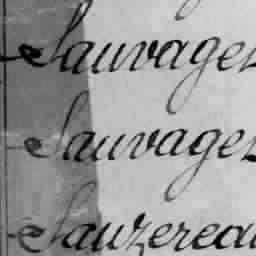 Sauvages
Sauvages
Sauzereau